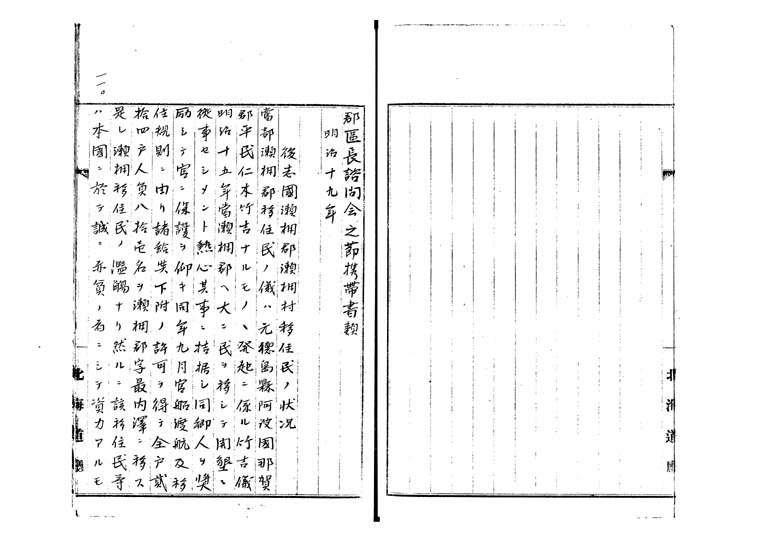 郡區長諮問会之節携帯書類
明治十九年
後志國瀬棚郡瀬棚村移住民ノ状况
當部瀬棚郡移住民ノ儀ハ元徳島縣阿波国那賀
郡平民仁木竹吉ナルモノヽ發起ニ係ル竹吉儀
明治十五年當瀬棚郡ヘ大ニ民ヲ移シテ開墾ニ
從事セシメント熱心其事ニ拮据シ同郷人ヲ奬
励シテ官ニ保護ヲ仰キ同年九月官船渡航及移
住規則ニ由リ諸給與下附ノ許可ヲ得テ全戸貳
拾四戸人員八拾壱名ヲ瀬棚郡字最内澤ニ移ス
是レ瀬棚移住民ノ濫觴ナリ然ルニ該移住民等
ハ本國ニ於テ誠ニ赤貧ノ者ニシテ資力アルモ
一一〇
北海道廳
北海道廳